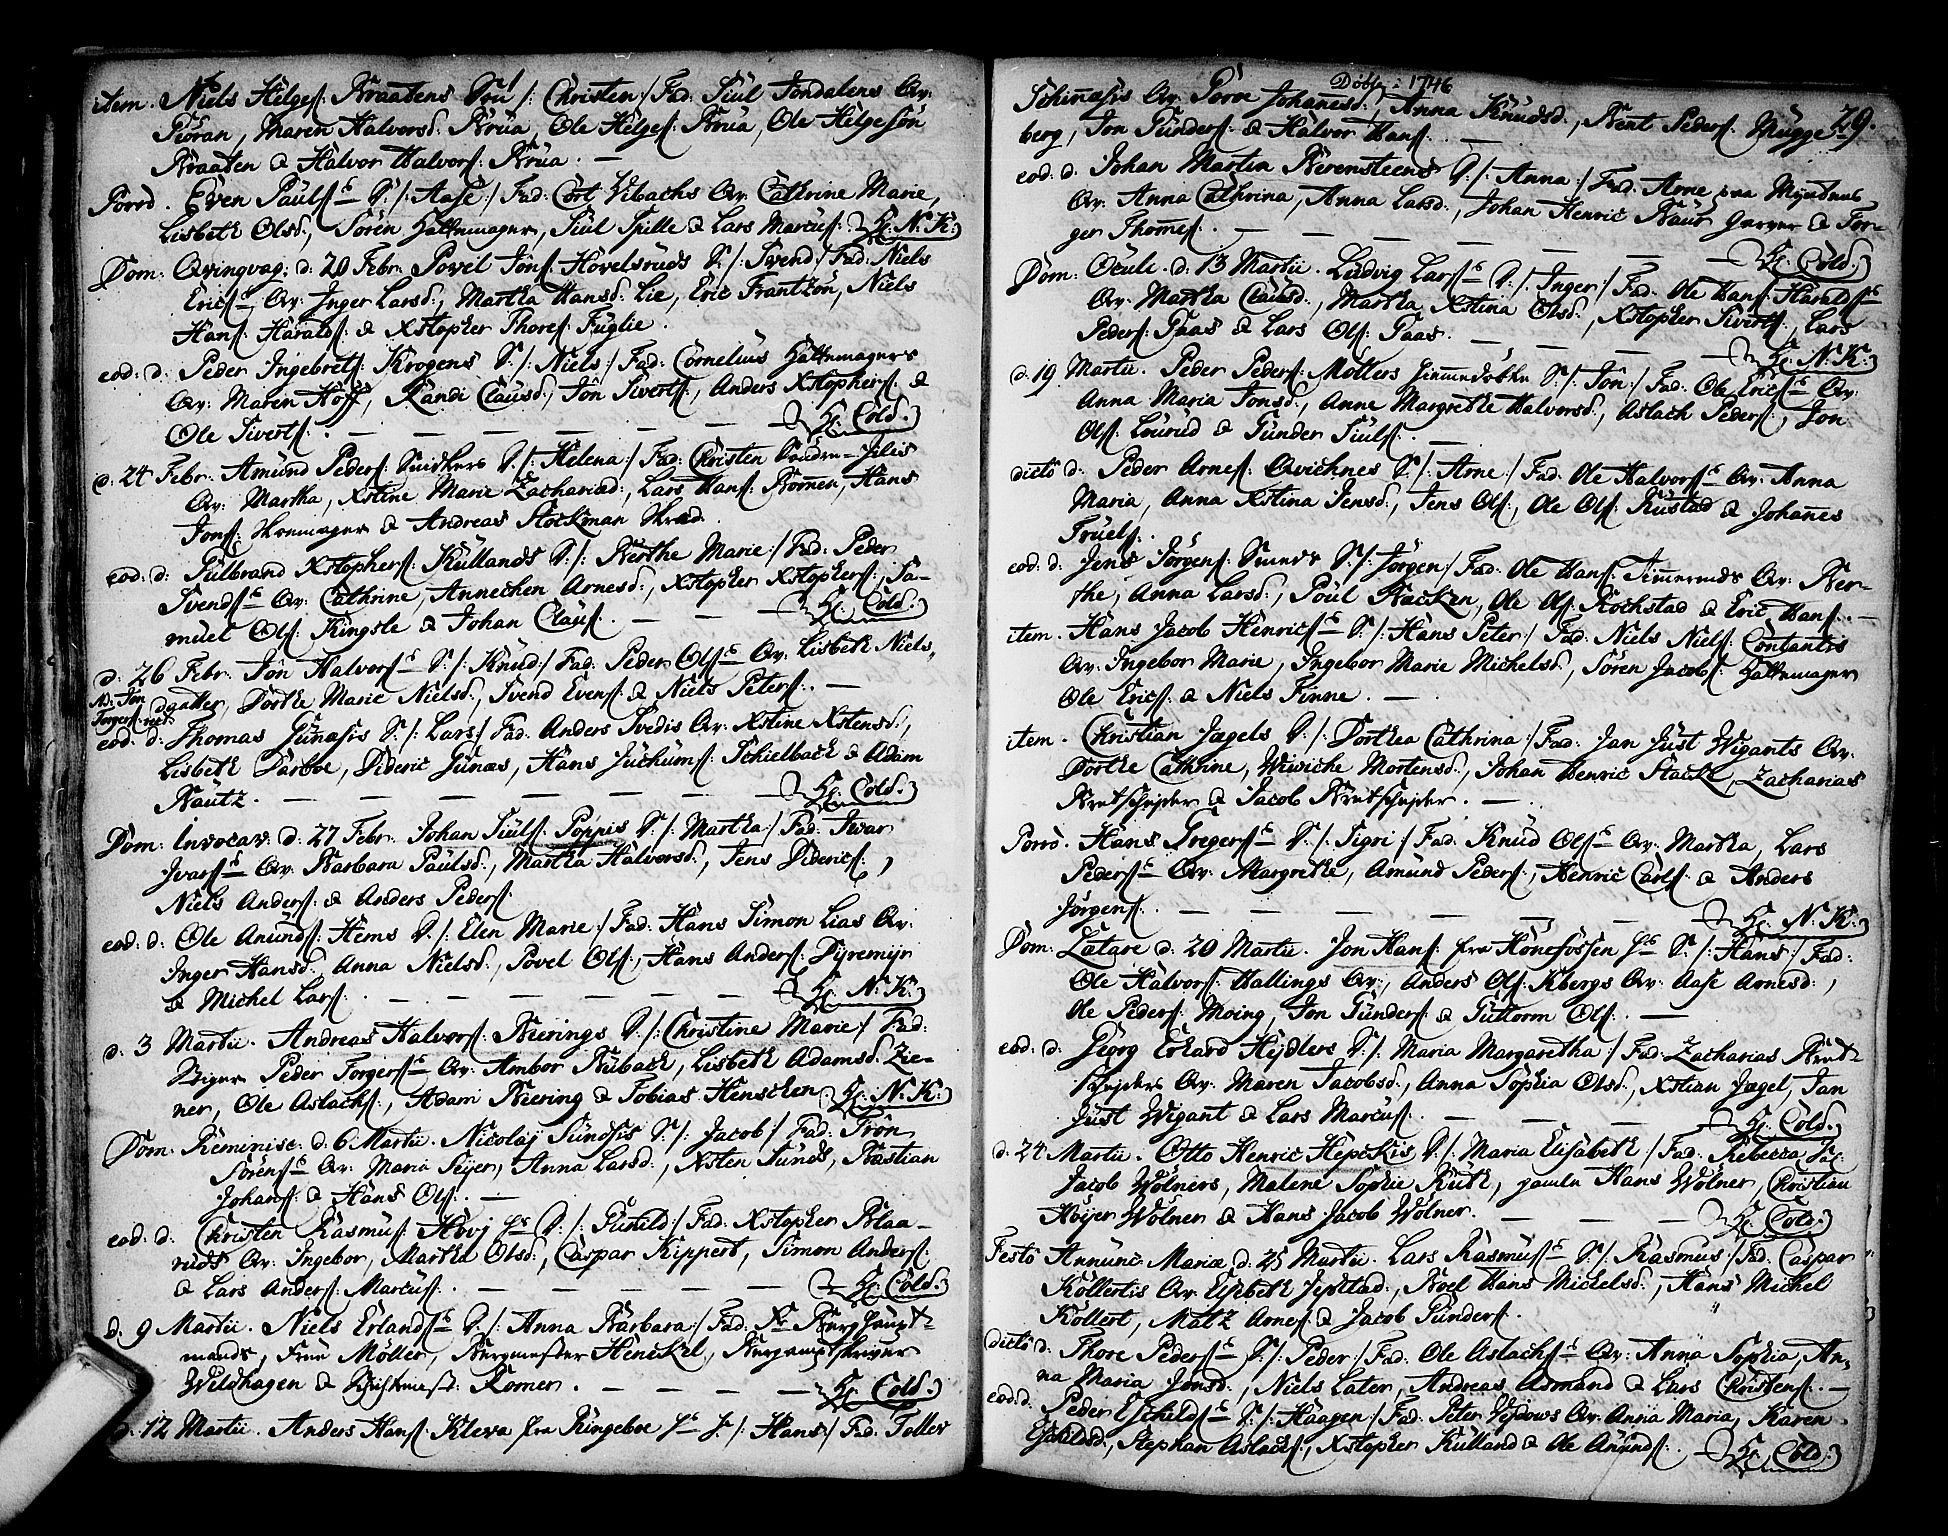 item. Niels Helges: Braatens Søn /: Christen :/ Fad: Siul Jondalens Qv:
Pöran, Maren Halvorsd: Krua, Ole Helges: Krua, Ole Helgesön
Braaten & Halvor Halvors: Krua. —
Porrò. Even Pauls: S. /: Aase :/ Fad: Cort Vibachs Qv: Cathrine Marie,
Lisbeth Olsd:, Sören Hattemager, Siul Spille & Lars Marcus: H: N: K:
Dom: Qvinqvag: d: 20 Febr. Povel Jons: Hovelsruds S. /: Svend :/ Fad: Niels
Erics: Qv: Inger Larsd:, Martha Hansd: Lie, Eric Frantzon, Niels
Hans: Haralds: & Xstopher Thores: Fuglie.
eod: d: Peder Ingebrets: Krogens S. /: Niels :/ Fad: Cornelius Hattemagers
Qv: Maren Hoff, Randi Clausd:, Jon Siverts:, Anders Xstophers: &
Ole Siverts: — — — H: Cold.
d. 24 Febr. Amund Peders: Snidkers D. /: Helena :/ Fad: Christen
Qv: Martha, Xstine Marie Zachariæd:, Lars Hans: Komen, Hans
Jons: & Andreas Stockman
eod: d: Gulbrand Xstophers: Kullands D. /: Berthe Marie :/ Fad: Peder
Svends: Qv: Cathrine, Annechen Arnesd:, Xstopher Xstophers:, Sa-
muel Ols: Kingsle & Johan Claus: — — H: Cold.
d. 26 Febr. Jon Halvors: S. /: Knud :/ Fad: Peder Ols: Qv: Lisbeth Niels,
datter, Dorthe Marie Nielsd:, Svend Evens: & Niels Peters: —
eod: d: Thomas Gunæsis S. /: Lars :/ Fad: Anders Svedis Qv: Xstine Xstensd:,
Lisbeth Darboe, Dideric Gunæs, Hans Juchums: Schielbach & Adam
Bautz. — — — H: Cold.
Dom: Invocav: d: 27 Febr. Johan Siuls: Poppis D. /: Martha :/ Fad: Ivar
Ivars: Qv: Barbara Paulsd:, Martha Halvorsd:, Jens Diderics:,
Niels Anders: & Anders Peders:
eod: d: Ole Anunds: Hems D. /: Elen Marie :/ Fad: Hans Simon Lias Qv:
Inger Hansd:, Anna Nielsd:, Povel Ols:, Hans Anders: Dyremyr
& Michel Lars: — — — H: N: K:
d. 3 Martii. Andreas Halvors: Bierings D. /: Christine Marie :/ Fad:
Peder Torgers: Qv: Ambor Bubach, Lisbeth Adamsd: Zie-
ner, Ole Aslachs:, Adam Biering & Tobias Henschen H: N: K:
Dom: Reminisc: d. 6 Martii. Nicolaij Sundsis S. /: Jacob :/ Fad: Trön
Sörens: Qv: Maria Seijer, Anna Larsd:, Xsten Sunds, Bastian
Johans: & Hans Ols: —
eod: d: Christen Rasmus: Hövj D. /: Gunild :/ Fad: Xstopher Blaa-
ruds Qv: Ingebor, Martha Olsd:, Caspar Kippert, Simon Anders:
& Lars Anders: Marcus: — — — H: Cold.
d. 9 Martii. Niels Erlands: D. /: Anna Barbara :/ Fad: Hr Berghaupt-
mands, Frue Möller, Bergmester Henckel, Bergamptskriver
Wildhagen & Skifftmest: Komer. — — — H: Cold.
d. 12 Martii. Anders Hans: Kleva fra Ringeboe S. /: Hans :/ Fad: Tollev
Döbte: 1746
29.
Schinæsis Qv: Poroe Johannesd:, Anna Knudsd:, Bent Peders: Mugge-
berg, Jon Gunders: & Halvor Hans: —
eod: d: Johan Martin Berensteens D. /: Anna :/ Fad: Arne paa Myntens
Qv: Anna Cathrina, Anna Larsd:, Johan Henric Baur Garver & Tor-
ger Thomes: — — — H: Cold.
Dom: Oculi. d: 13 Martii. Ludvig Lars: D. /: Inger :/ Fad: Ole Hans: Haralds:
Qv: Martha Clausd:, Martha Xstina Olsd:, Xstopher Siverts:, Lars
Peders: Paas & Lars Ols: Paas. — — — H: N: K:
d. 19 Martii. Peder Peders: Möllers S. /: Jon :/ Fad: Ole Erics: Qv:
Anna Maria Jonsd:, Anne Margrethe Halvorsd:, Aslach Peders:, Jon
Ols: Lourud & Gunder Siuls: —
dictò d: Peder Arnes: Qvichnes S. /: Arne :/ Fad: Ole Halvors: Qv: Anna
Maria, Anna Xstina Jensd:, Jens Ols:, Ole Ols: Rustad & Johannes
Truels:
eod: d: Jens Jörgens: Smeds S. /: Jörgen :/ Fad: Ole Hans: Temmeruds Qv: Ber-
the, Anna Larsd:, Poul Backen, Ole Ols: Rockstad & Eric Hans: —
item. Hans Jacob Henrics: S. /: Hans Peter :/ Fad: Niels Niels: Contantis
Qv: Ingebor Marie, Ingebor Marie Michelsd:, Sören Jacobs: Hattemager
Ole Erics: & Niels Finne. —
item. Christian Jægels D. /: Dorthea Cathrina :/ Fad: Jan Just Wigants Qv:
Dorthe Cathrine, Wiviche Mortensd:, Johan Henric Stache, Zacharias
Bretschnejder & Jacob Bretschnejder. —
Porrò. Hans Gregers: D. /: Sigri :/ Fad: Knud Ols: Qv: Martha, Lars
Peders: Qv: Margrethe, Amund Peders:, Henric Carls: & Anders
Jörgens: — — — H: N: K:
Dom: Lætare d: 20 Martii. Jon Hans: fra Hönefossen S. /: Hans :/ Fad:
Ole Halvors: Hallings Qv:, Anders Ols: Kbergs Qv: Aase Arnesd:,
Ole Peders: Moing, Jon Gunders: & Guttorm Ols: —
eod: d: Georg Erhard Hejdlers D. /: Maria Margaretha :/ Fad: Zacharias Bret-
schnejders Qv: Maren Jacobsd:, Anna Sophia Olsd:, Xstian Jægel, Jan
Just Wigant & Lars Marcus: — — H: Cold.
d: 24 Martii. Otto Henric Hepckis D. /: Maria Elisabeth :/ Fad: Rebecca
Jacob Wölners, Malene Sophie Ruth, gamle Hans Wölner, Christian
Höijer Wölner & Hans Jacob Wölner. — — — H: Cold.
Festò Annunc: Mariæ, d: 25 Martii. Lars Rasmus: S. /: Rasmus :/ Fad: Caspar
Köllertis Qv: Elsebeth Jestad, Boel Hans Michelsd:, Hans Michel
Köllert, Matz Arnes: & Jacob Gunders:
dictò d: Thore Peders: S. /: Peder :/ Fad: Ole Aslachs: Qv: Anna Sophia, An-
na Maria Jonsd:, Niels Later, Andreas Asmand & Lars Christens: —
eod: d: Peder Eschilds: S. /: Haagen :/ Fad: Peter Vejdows Qv: Anna Maria, Karen
Eschildsd:, Stephan Aslachs:, Xstopher Kulland & Ole Anunds: — H: Cold.